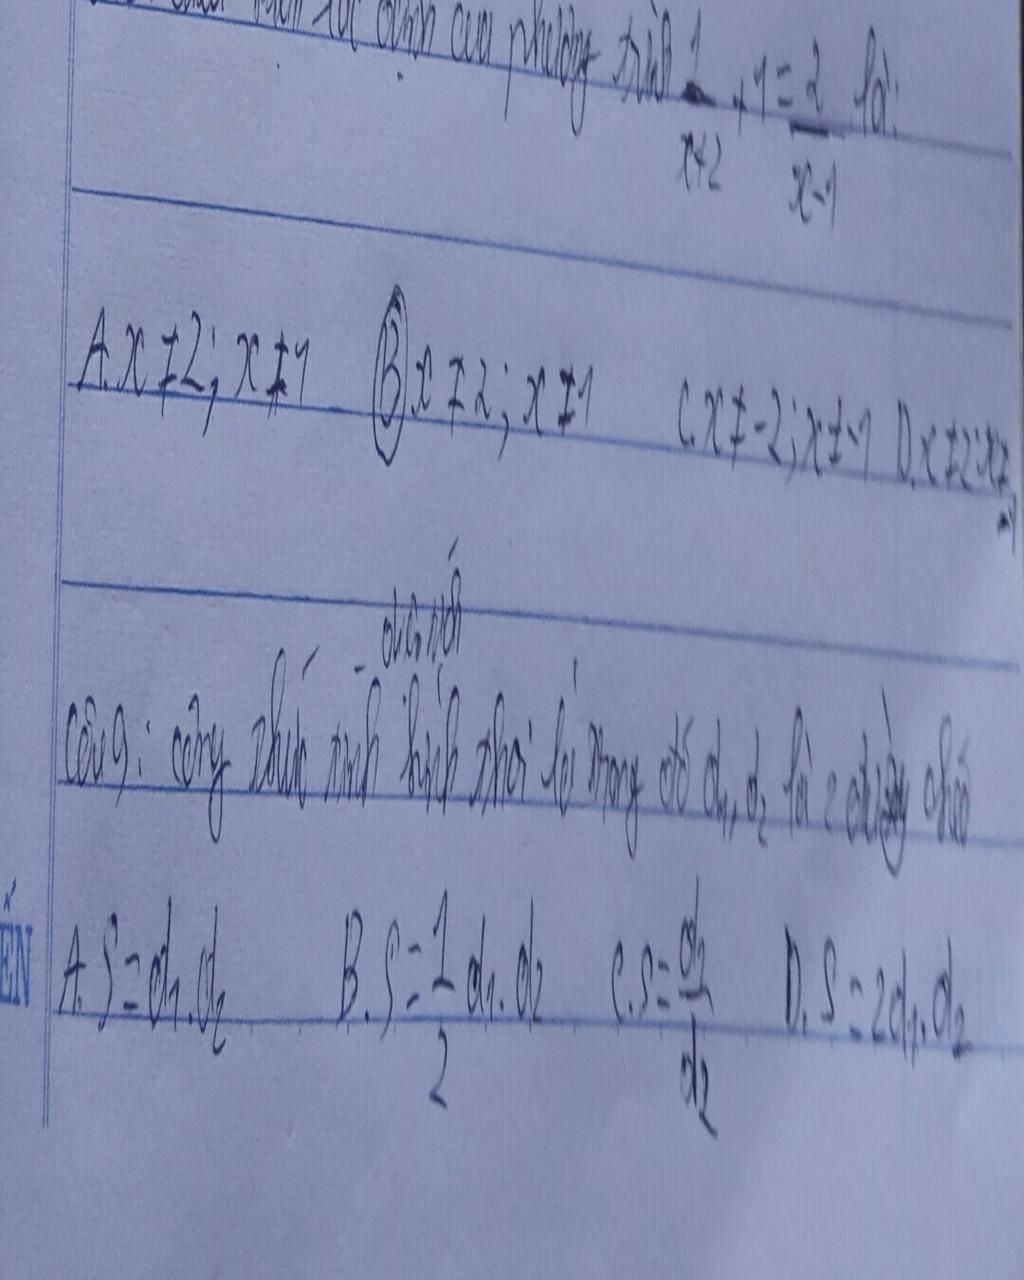 xác định của phương trình 1/x+2 + 1 = 2/x-1 là:
A. x ≠ 2; x ≠ 1 B. x ≠ 2; x ≠ 1 C. x ≠ -2; x ≠ -1 D. x ≠ 2; x ≠ -1
Câu 9: công thức tính hình thoi là trong đó d1, d2 là 2 đường chéo
A. S = d1.d2 B. S = 1/2 d1.d2 C. S = d1/d2 D. S = 2d1.d2
ẾN